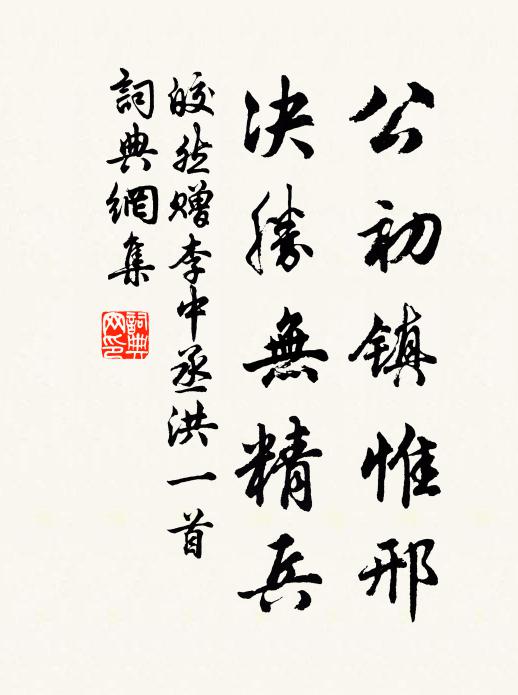 公初镇惟邢
决勝無精兵
皎然赠李中丞洪一首
詞典網集
詞典网印